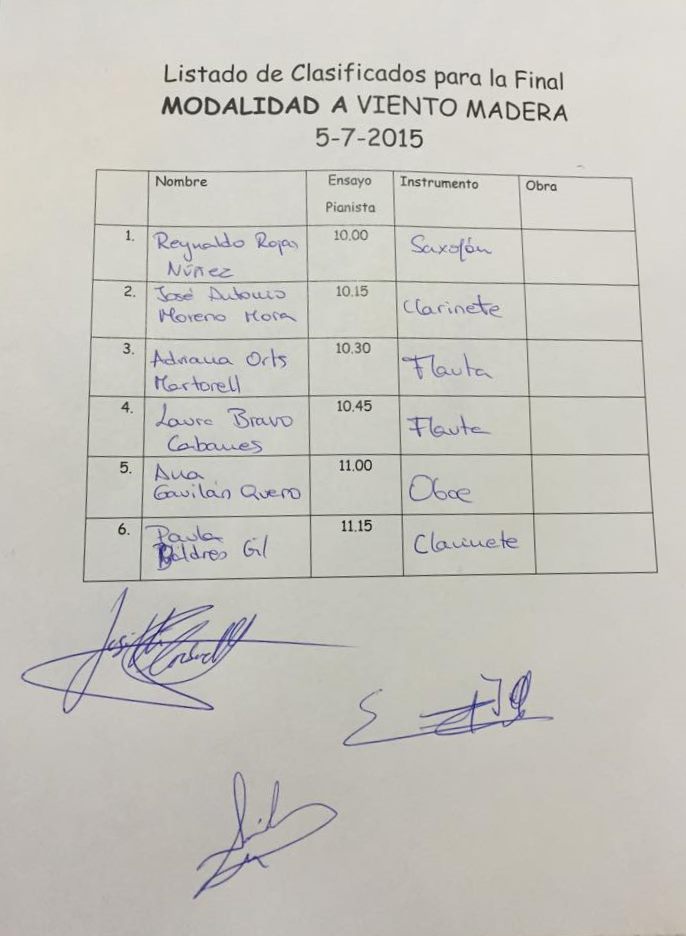 Listado de Clasificados para la Final
MODALIDAD A VIENTO MADERA
5-7-2015
Nombre Ensayo Pianista Instrumento Obra
1. Reynaldo Rojas 10.00 Saxofón
Núñez
2. José Antonio 10.15 Clarinete
Moreno Mora
3. Adriana Orts 10.30 Flauta
Martorell
4. Laura Bravo 10.45 Flauta
Cabanes
5. Ana 11.00 Oboe
Gavilán Quero
6. Paula 11.15 Clarinete
Gil